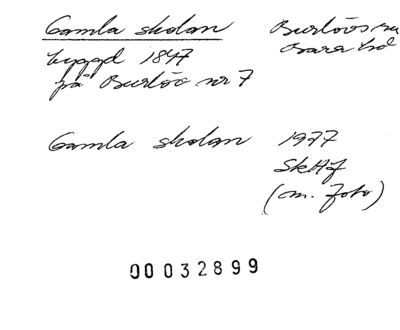 Gamla skolan Burlövs
byggd 1847 Bara hd
på Burlöv nr 7
Gamla skolan 1977
SkHf
(m. foto)
00032899